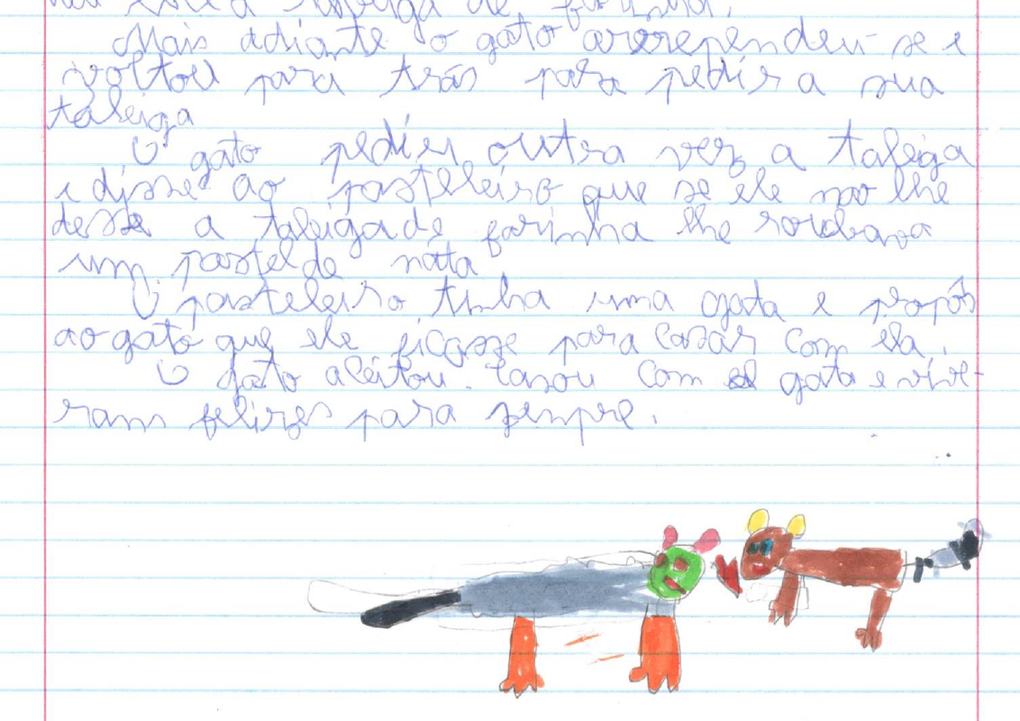 taleiga de farinha.
Mais adiante o gato arerependeu-se e
voltou para trás para pedir a sua
taleiga
O gato pediu outra vez a taleiga
e disse ao pasteleiro que se ele não lhe
desse a taleiga de farinha lhe roubava
um pastel de nata
O pasteleiro tinha uma gata e propôs
ao gato que ele ficasse para casar com ela.
O gato aceitou. Casou com a gata e vive-
ram felizes para sempre.